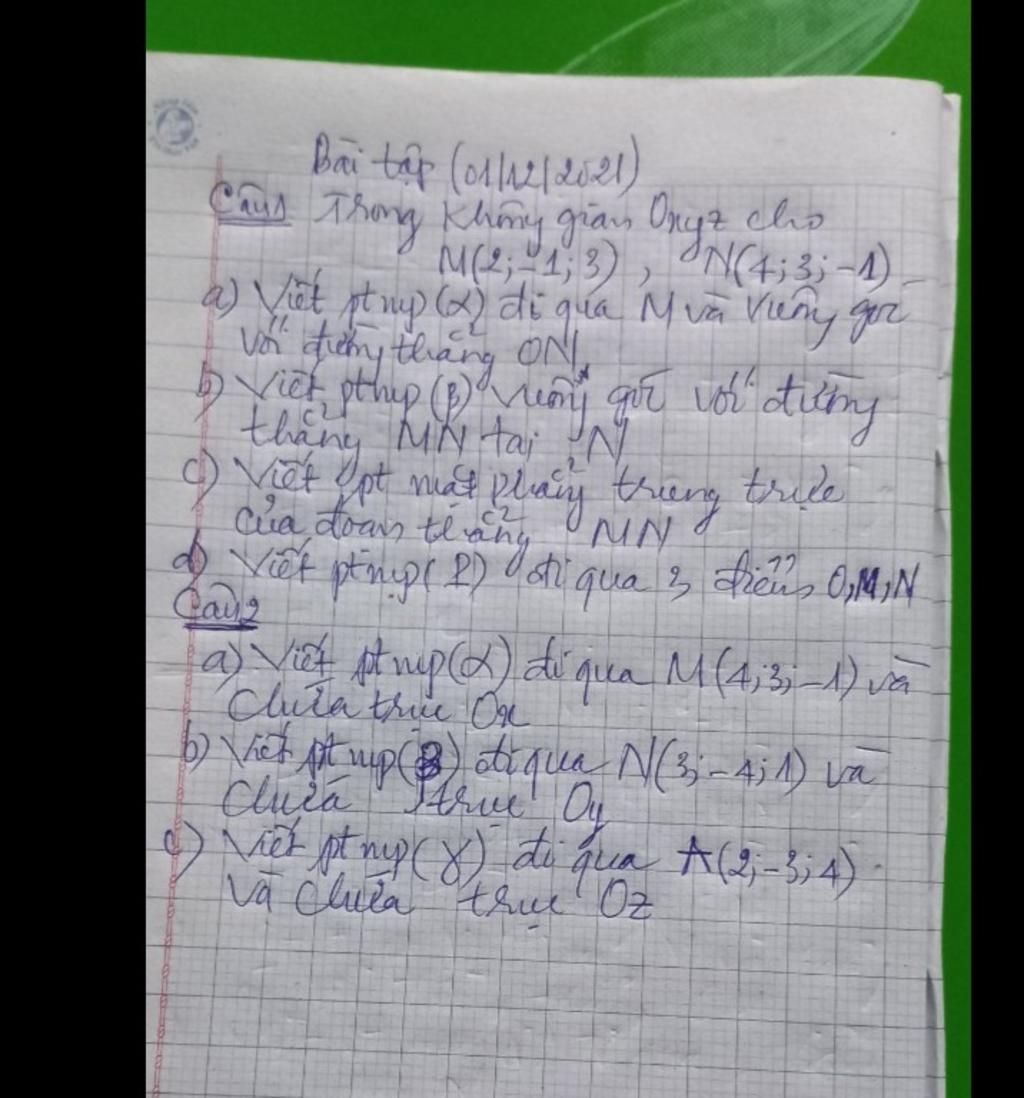 Bài tập (01/12/2021)
Câu 1 Trong không gian Oxyz cho
M(2;-1;3), N(4;3;-1)
a) Viết pt mp(α) đi qua M và vuông góc
với đường thẳng ON
b) Viết pt mp(β) vuông góc với đường
thẳng MN tại N
c) Viết pt mặt phẳng trung trực
của đoạn thẳng MN
d) Viết pt mp(P) đi qua 3 điểm O,M,N
Câu 2
a) Viết pt mp(α) đi qua M(4;3;-1) và
chứa trục Ox
b) Viết pt mp(β) đi qua N(3;-4;1) và
chứa trục Oy
c) Viết pt mp(γ) đi qua A(2;-3;4)
và chứa trục Oz